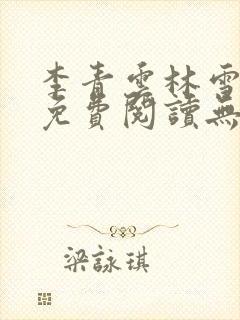 李青雲林雪
免費閱讀無
梁詠琪